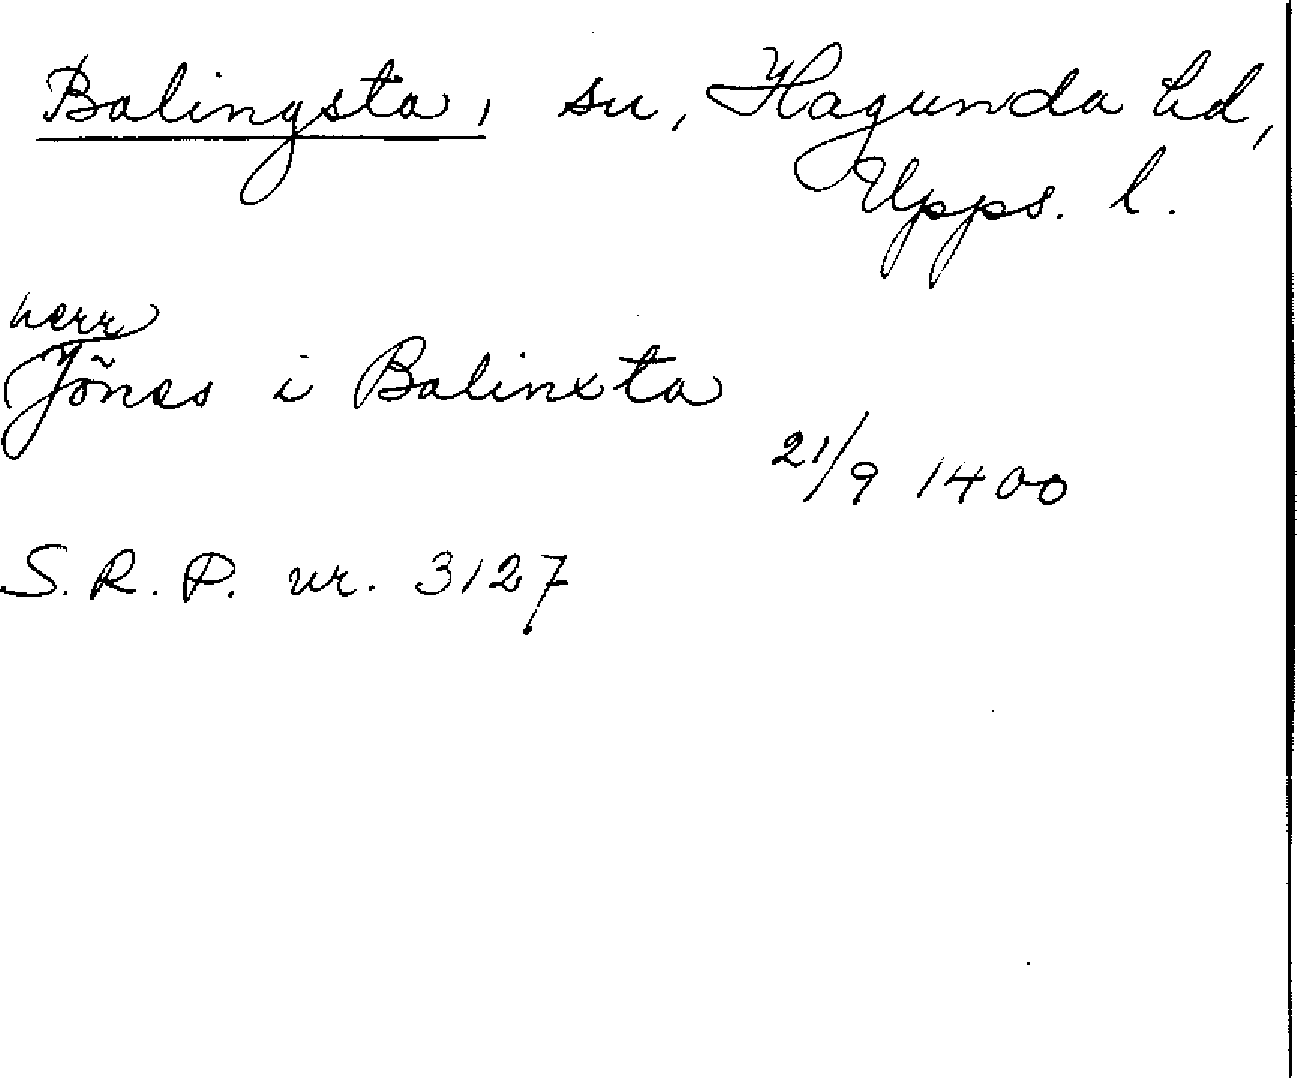 Balingsta, sn, Hagunda hd,
Upps. l.
herr
Jõnes i Balinxta
21/9 1400
S. R. P. nr. 3127